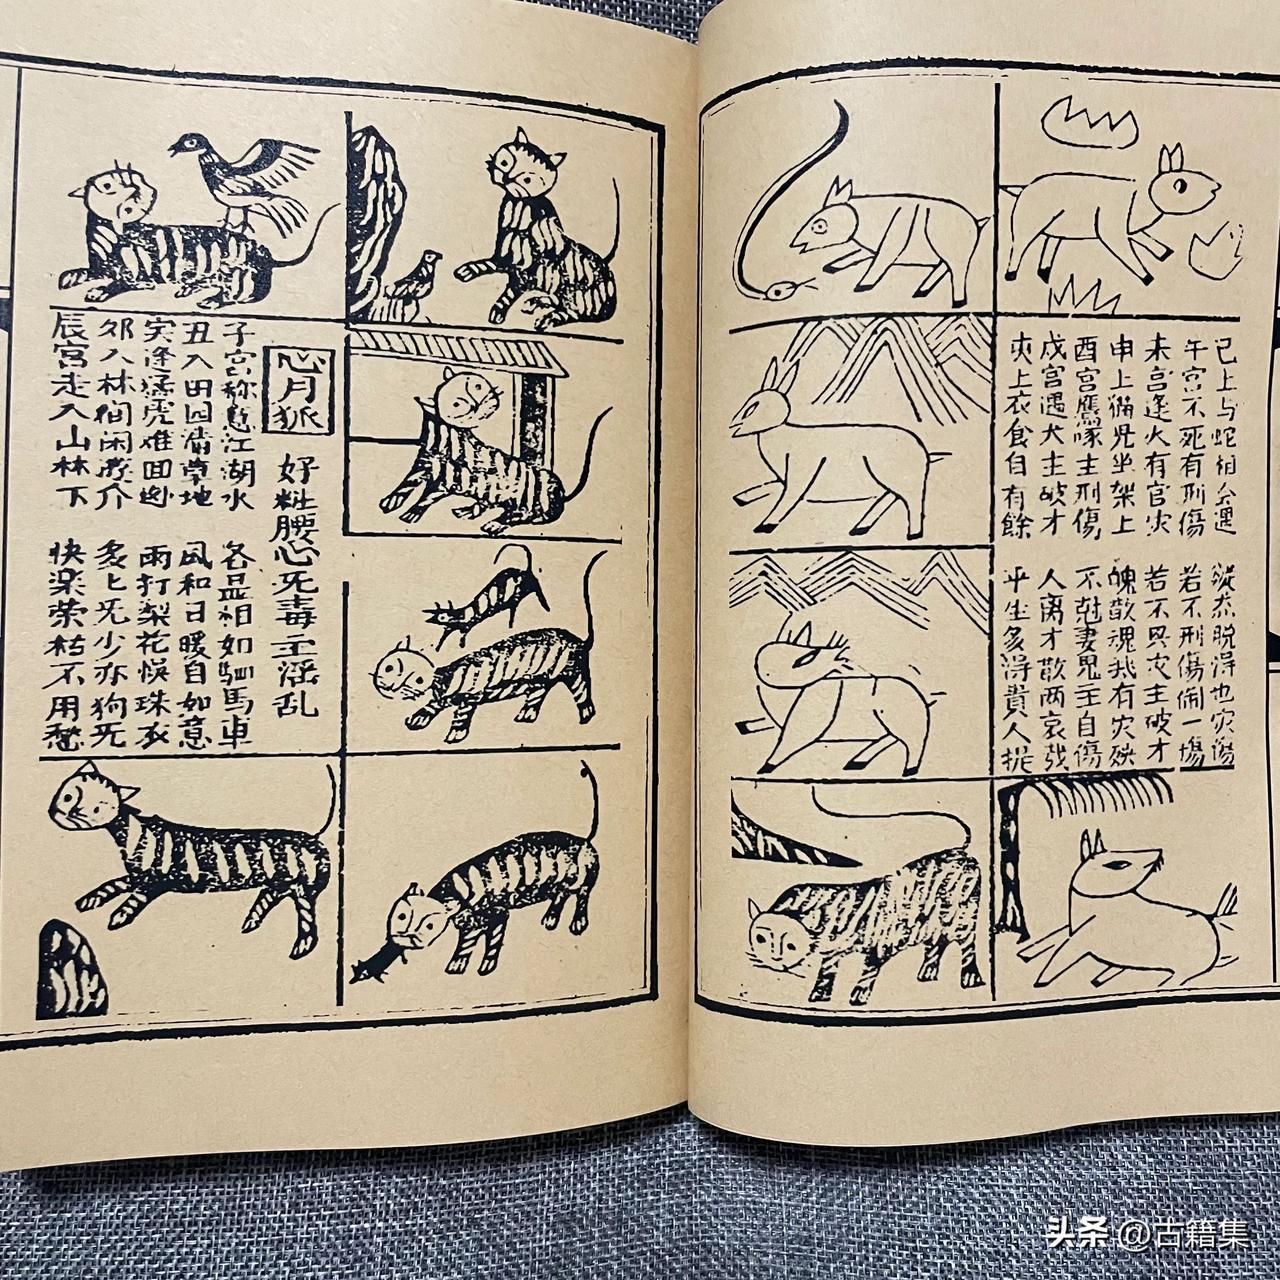 巳上与蛇相会遇
縱态脱得也灾傷
午宫不死有刑傷
若不刑傷閙一場
未宫逢火有官灾
若不興灾主破才
申上猫児坐架上
魄散魂飛有灾殃
酉宫鷹啄主刑傷
不尅妻児主自傷
戍宫遇犬主破才
人离才散两哀哉
亥上衣食自有餘
平生多得貴人提
心月狐
好粧腰心无毒主淫乱
子宫称意江湖水
各品相如駟馬車
丑入田园清草地
風和日暖自如意
寅逢猛虎难回
雨打梨花悞珠衣
夘入林间闲
多匕无少亦狗无
辰宫走入山林下
快楽荣枯不用愁
头条 @古籍集